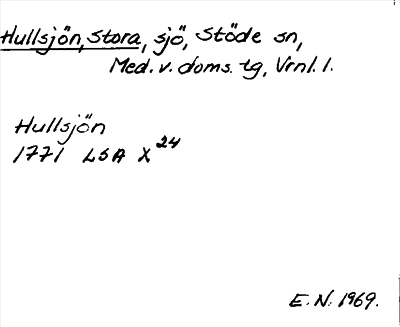 Hullsjön, Stora, sjö, Stöde sn,
Med. v. doms. tg, Vrnl. l.
Hullsjön
1771 LSA X 24
E. N. 1969.